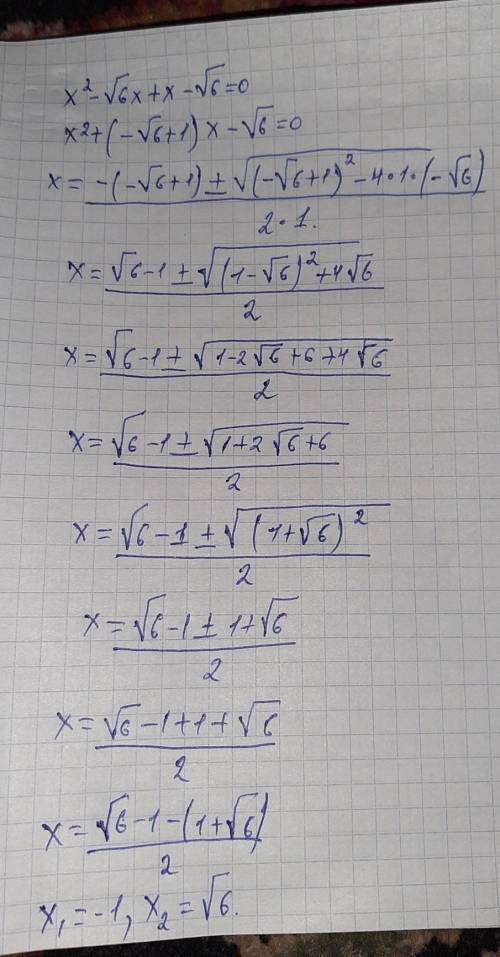 x² - √6x + x - √6 = 0
x² + (-√6 + 1)x - √6 = 0
x = (-(-√6 + 1) ± √((-√6 + 1)² - 4·1·(-√6))) / (2·1.)
x = (√6 - 1 ± √((1 - √6)² + 4√6)) / 2
x = (√6 - 1 ± √(1 - 2√6 + 6 + 4√6)) / 2
x = (√6 - 1 ± √(1 + 2√6 + 6)) / 2
x = (√6 - 1 ± √((1 + √6)²)) / 2
x = (√6 - 1 ± 1 + √6) / 2
x = (√6 - 1 + 1 + √6) / 2
x = (√6 - 1 - (1 + √6)) / 2
x₁ = -1, x₂ = √6.